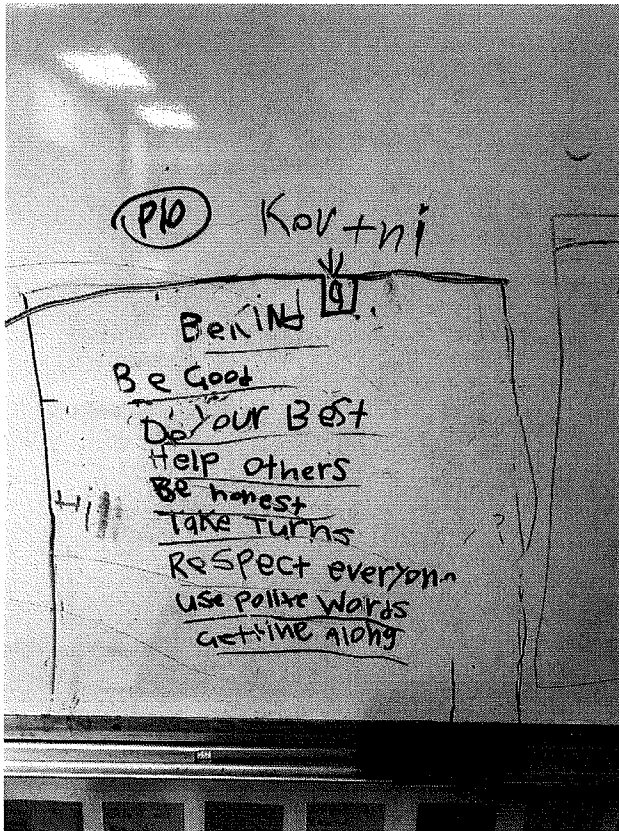 P10 Kov+ni
9
BeKiNd
Be Good
Do Your Best
Help others
Be honest
Hi
Take Turns
ReSPect everyon
use polite words
Gettine Along